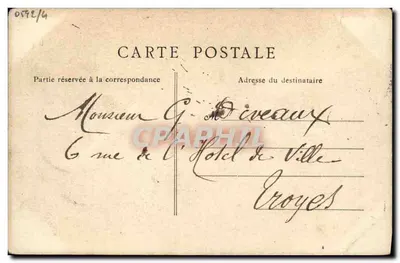 0592/4
CARTE POSTALE
Partie réservée à la correspondance
Adresse du destinataire
Monsieur G. Diveaux
CPAPHIL.com
6 rue de l'Hotel de Ville
Troyes